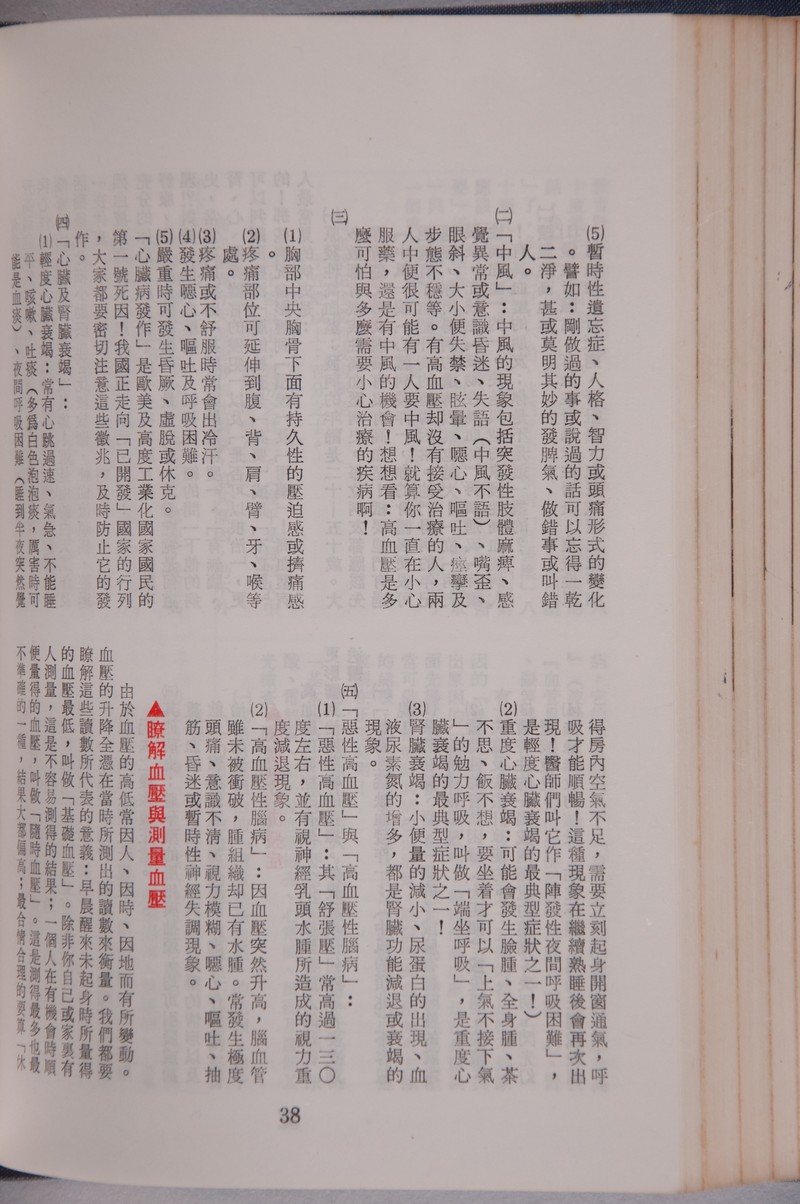 ⑸暫時性遺忘症、人格、智力或頭痛形式的變化
。譬如：剛做過的事或說過的話可以忘得一乾
二淨，甚或莫明其妙的發脾氣、做錯事或叫錯
人。
㈡「中風」：中風的現象包括突發性肢體麻痺、感
覺異常或意識昏迷、失語（中風不語）、嘴歪、
眼斜、大小便失禁、眩暈、噁心、嘔吐、痙攣及
步態不穩等。有高血壓却沒有接受治療的人，兩
人中便很可能有一人要中風！就算你一直在小心
服藥，還是有中風的機會！想想看：高血壓是多
麼可怕與多麼需要小心治療的疾病啊！
㈢
⑴胸部中央胸骨下面有持久性的壓迫感或擠痛感
。
⑵疼痛部位可延伸到腹、背、肩、臂、牙、喉等
處。
⑶疼痛或不舒服時常會出冷汗。
⑷發生噁心、嘔吐及呼吸困難。
⑸嚴重時可發生昏厥、虛脫或休克。
「心臟病發作」是歐美及高度工業化國家國民的
第一號死因！我國正走向「已開發」國家的行列
，大家都要密切注意這些徵兆，及時防止它的發
作。
㈣「心臟及腎臟衰竭」：
⑴輕度心臟衰竭：常有心跳過速、氣急、不能睡
平、咳嗽、吐痰（多爲白色泡泡痰，厲害時可
能是血痰）、夜間呼吸困難（睡到半夜突然覺
得房內空氣不足，需要立刻起身開窗通氣，呼
吸才能順暢！這種現象在繼續熟睡後會再次出
現！醫師們叫它作「陣發性夜間呼吸困難」，
是輕度心臟衰竭的最典型症狀之一！）
⑵重度心臟衰竭：可能會發生臉腫、全身腫、茶
不思、飯不想，要坐着才可以「上氣不接下氣
」的勉力呼吸，叫做「端坐呼吸」，是重度心
臟衰竭的最典型症狀之一！
⑶腎臟衰竭：小便量的減小、尿蛋白的出現、血
液尿素氮的增多，都是腎臟功能減退或衰竭的
現象。
㈤「惡性高血壓」與「高血壓性腦病」：
⑴「惡性高血壓」：其「舒張壓」常高過一三〇
度左右，並有視神經乳頭水腫所造成的視力重
度減退現象。
⑵「高血壓性腦病」：因血壓突然升高，腦血管
雖未被衝破，腫組織却已有水腫。常發生極度
頭痛、意識不清、視力模糊、噁心、嘔吐、抽
筋、昏迷或暫時性神經失調現象。
▲瞭解血壓與測量血壓
由於血壓的高低常因人、因時、因地而有所變動。
血壓的升降全憑在當時所測出的讀數來衡量。我們都要
瞭解這些讀數所代表的意義：早晨醒來未起身時所量得
的血壓最低，叫做「基礎血壓」。除非你自己或家裏有
人測量，這是不容易測得的結果；一個人在有機會時順
便量得的血壓，叫做「隨時血壓」。這是測得最多也最
不準確的一種，結果大都偏高；最合情合理的要算「休
38